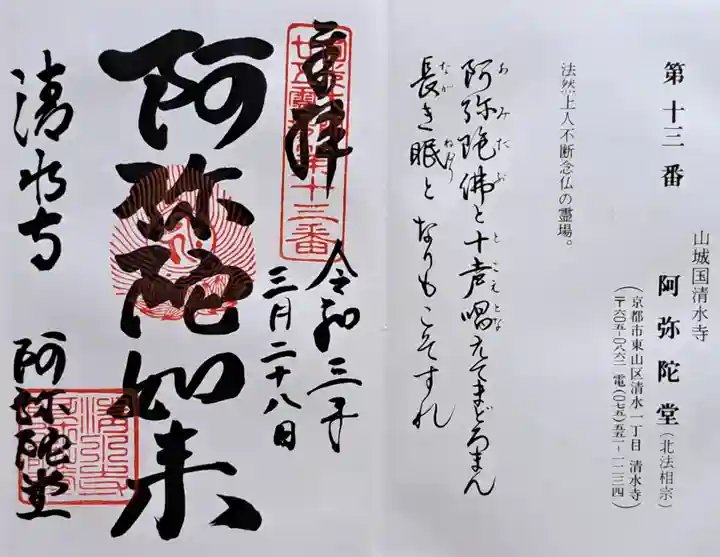 第十三番
山城国清水寺
阿弥陀堂(北法相宗)
(京都市東山区清水一丁目 清水寺
〒六〇五-〇八六二 電(〇七五)五五一-一二三四)
法然上人不断念仏の霊場。
阿弥陀佛と十声唱えてまどろまん
長き眠となりもこそすれ
奉拝
令和三年
三月二十八日
阿弥陀如来
清水寺
阿弥陀堂